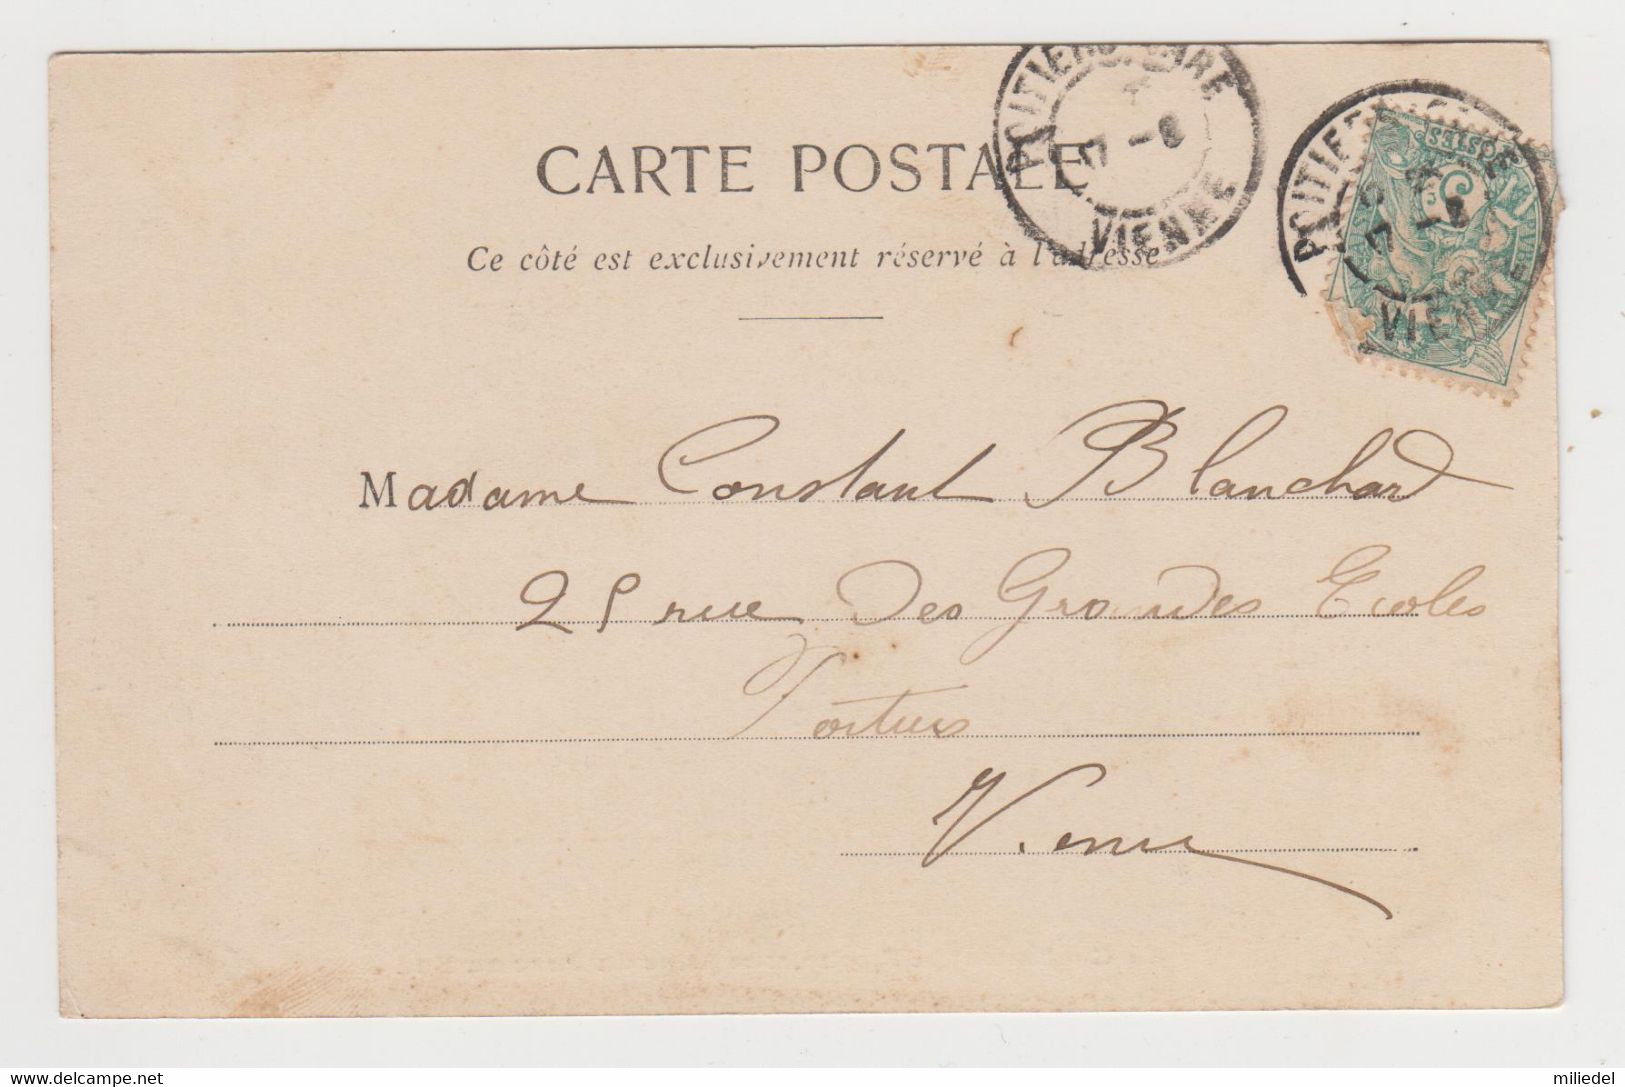 CARTE POSTALE
Ce côté est exclusivement réservé à l'adresse
POITIERS GARE
7 -8
VIENNE
POITIERS GARE
7 -8
VIENNE
POSTES
Madame Constant Blanchard
25 rue des Grandes Ecoles
Poitiers
Vienne
delcampe.net
miliedel